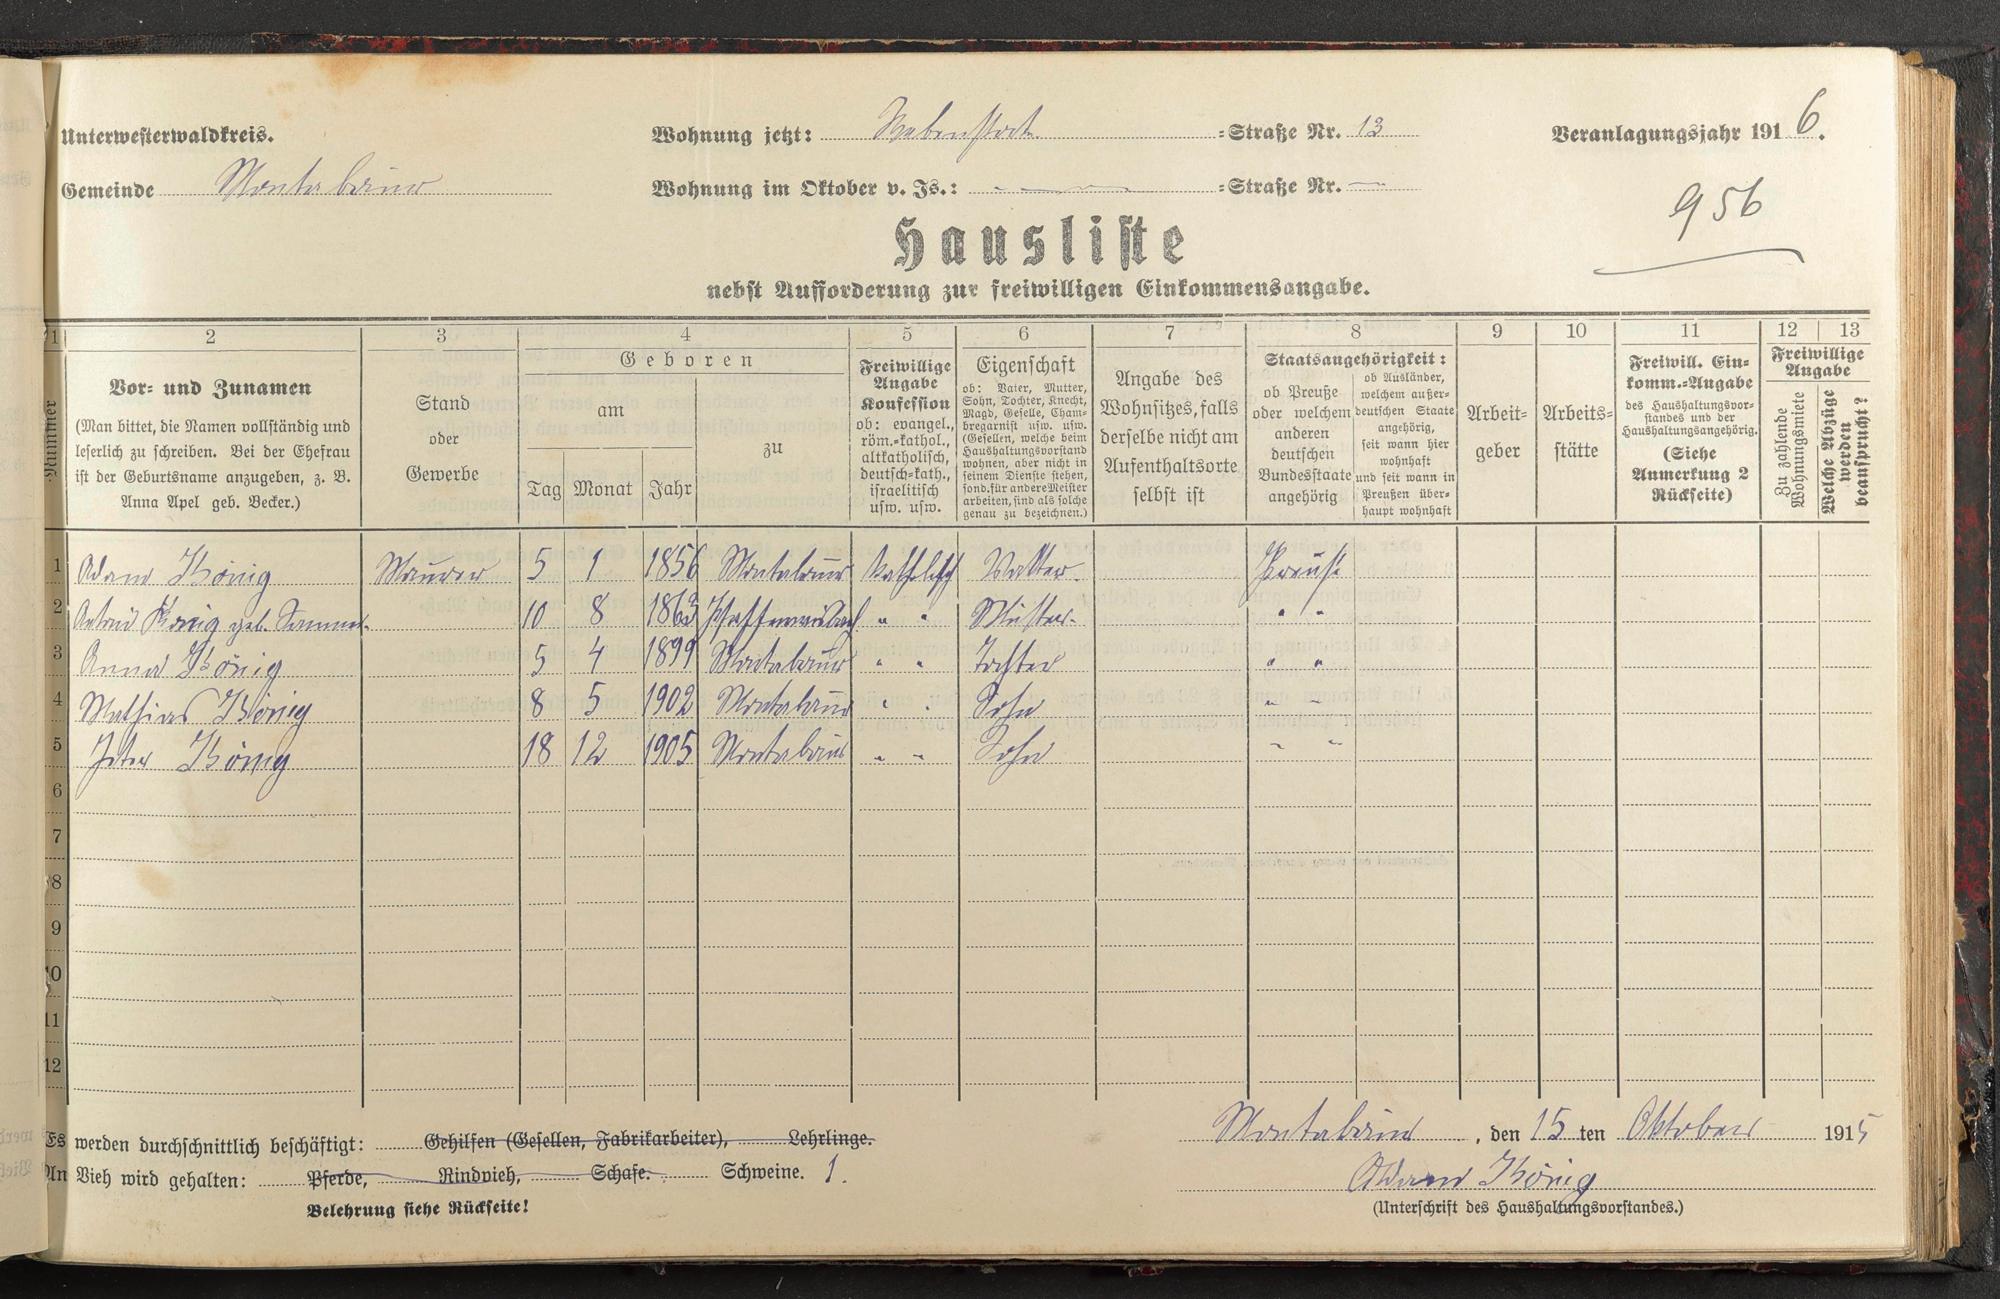 Unterwesterwaldkreis.
Wohnung jetzt: -Straße Nr. 13
Veranlagungsjahr 1916.
Gemeinde Montabaur
Wohnung im Oktober v. Js.: -Straße Nr. —
956
Hausliste
nebst Aufforderung zur freiwilligen Einkommensangabe.
1 2 3 4 5 6 7 8 9 10 11 12 13
Nummer
Vor- und Zunamen
(Man bittet, die Namen vollständig und
leserlich zu schreiben. Bei der Ehefrau
ist der Geburtsname anzugeben, z. B.
Anna Apel geb. Becker.)
Stand
oder
Gewerbe
Geboren
am
zu
Tag Monat Jahr
Freiwillige
Angabe
Konfession
ob: evangel.,
röm.-kathol.,
altkatholisch,
deutsch-kath.,
israelitisch
usw. usw.
Eigenschaft
ob: Vater, Mutter,
Sohn, Tochter, Knecht,
Magd, Geselle, Cham-
bregarnist usw. usw.
(Gesellen, welche beim
Haushaltungsvorstand
wohnen, aber nicht in
seinem Dienste stehen,
sond. für andere Meister
arbeiten, sind als solche
genau zu bezeichnen.)
Angabe des
Wohnsitzes, falls
derselbe nicht am
Aufenthaltsorte
selbst ist
Staatsangehörigkeit:
ob Preuße
oder welchem
anderen
deutschen
Bundesstaate
angehörig
ob Ausländer,
welchem außer-
deutschen Staate
angehörig,
seit wann hier
wohnhaft
und seit wann in
Preußen über-
haupt wohnhaft
Arbeit-
geber
Arbeits-
stätte
Freiwill. Ein-
komm.-Angabe
des Haushaltungsvor-
standes und der
Haushaltungsangehörig.
(Siehe
Anmerkung 2
Rückseite)
Freiwillige
Angabe
Zu zahlende
Wohnungsmiete
Welche Abzüge
werden
beansprucht?
1 Adam König Maurer 5 1 1856 Montabaur katholisch Vatter. Preuße
2 König geb. 10 8 1863 " " Mutter. " "
3 Anna König 5 4 1899 Montabaur " " Tochter " "
4 Mathias König 8 5 1902 Montabaur " " Sohn " "
5 Peter König 18 12 1905 Montabaur " " Sohn " "
6
7
8
9
10
11
12
Es werden durchschnittlich beschäftigt: Gehilfen (Gesellen, Fabrikarbeiter), Lehrlinge.
An Vieh wird gehalten: Pferde, Rindvieh, Schafe. Schweine. 1.
Belehrung siehe Rückseite!
Montabaur, den 15 ten Oktober 1915
Adam König
(Unterschrift des Haushaltungsvorstandes.)